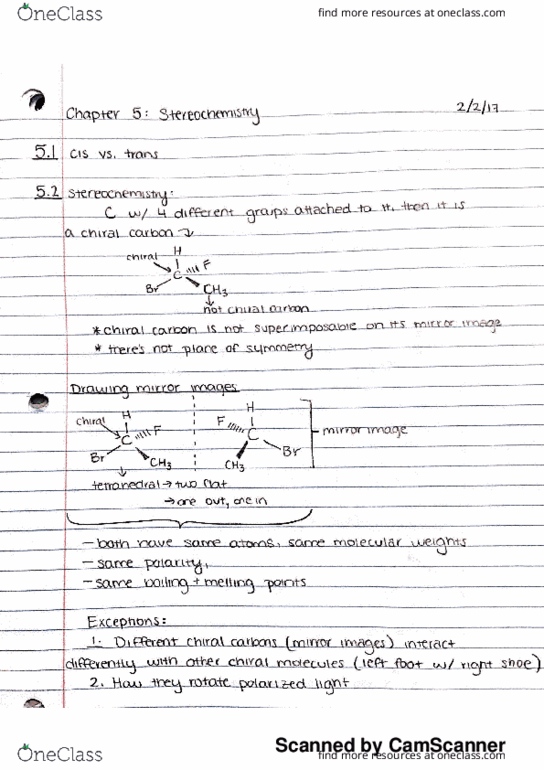 OneClass
find more resources at oneclass.com
Chapter 5: Stereochemistry
2/2/17
5.1 cis vs. trans
5.2 Stereochemistry:
C w/ 4 different groups attached to it, then it is
a chiral carbon ↓
chiral H
C F
Br CH3
↓
not chiral carbon
* chiral carbon is not superimposable on its mirror image
* there's not plane of symmetry
Drawing mirror images
chiral H
C F
Br CH3
H
F C
CH3 Br
mirror image
↓
tetrahedral → two flat
→ one out, one in
- both have same atoms, same molecular weights
- same polarity,
- same boiling + melting points
Exceptions:
1. Different chiral carbons (mirror images) interact
differently with other chiral molecules (left foot w/ right shoe)
2. How they rotate polarized light
Scanned by CamScanner
OneClass
find more resources at oneclass.com